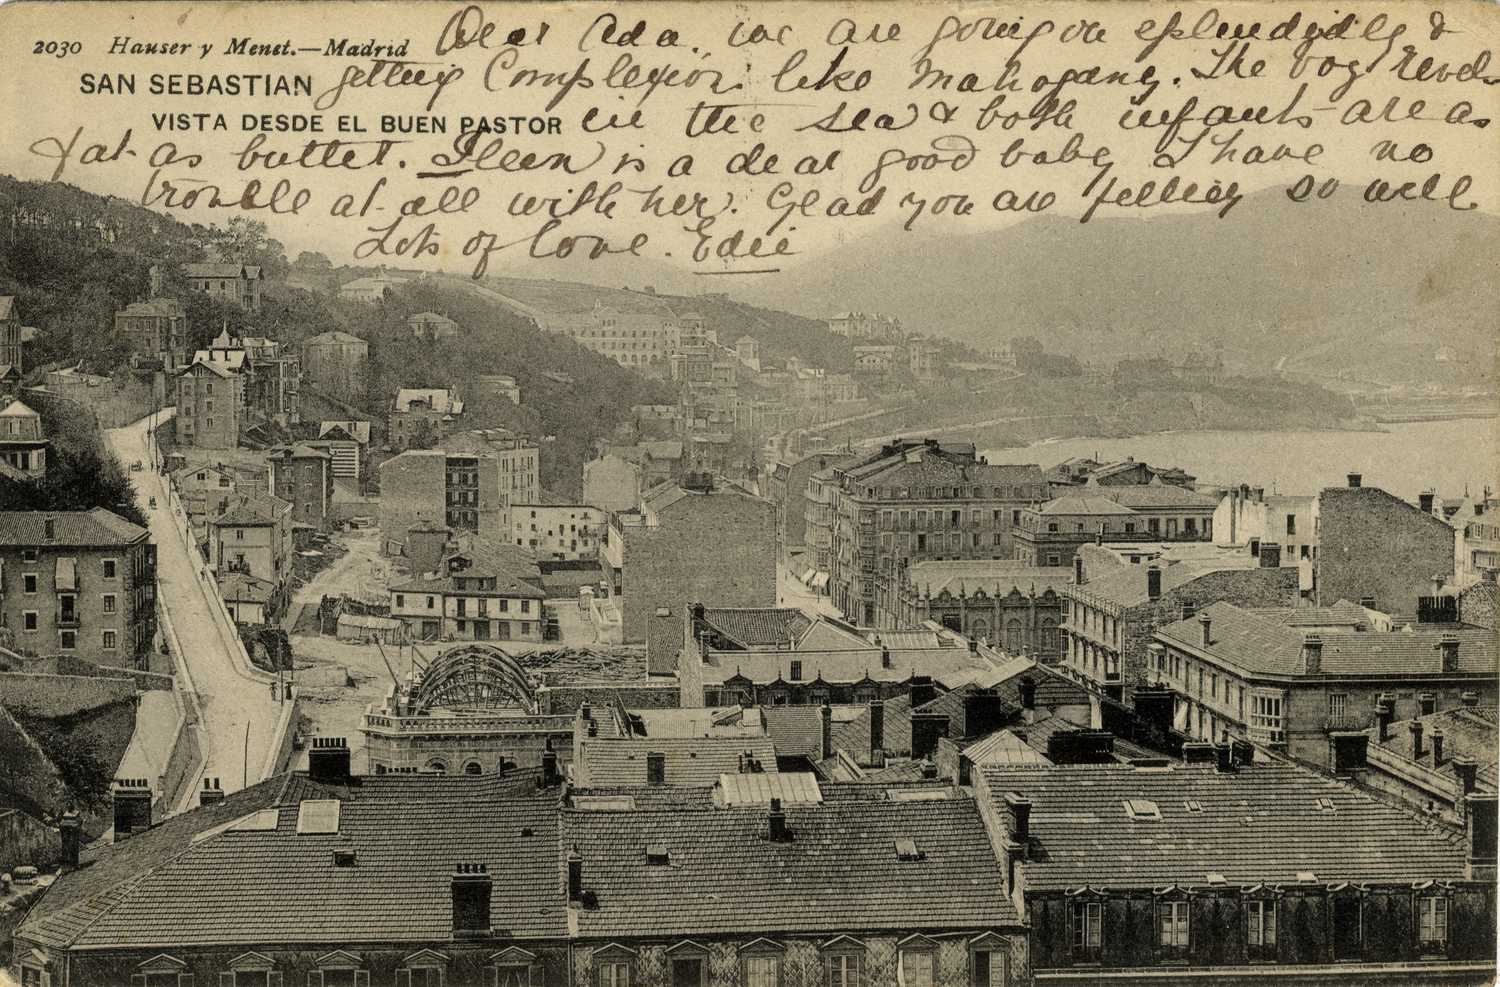 2030 Hauser y Menet.—Madrid Dear Ada, we are going on splendidly &
SAN SEBASTIAN getting Complexions like Mahogany. The boy revels
VISTA DESDE EL BUEN PASTOR in the sea & both infants are as
fat as butter. Ileen is a dear good baby I have no
trouble at all with her. Glad you are feeling so well
Lots of love. Edie